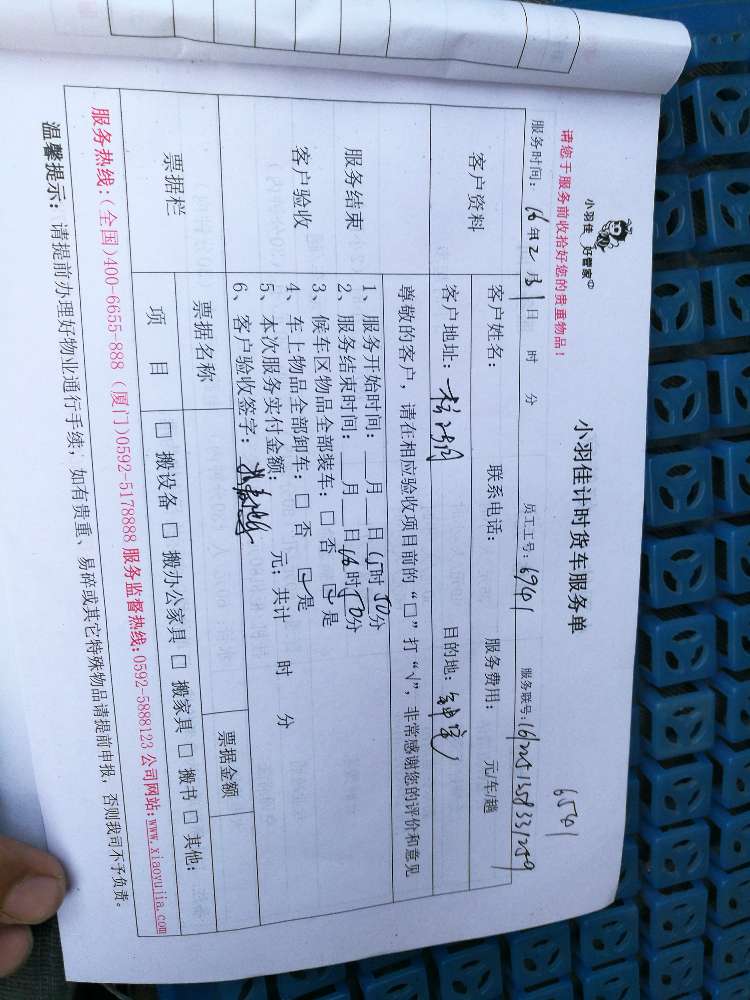 小羽佳 好管家
请您于服务前收拾好您的贵重物品！
小羽佳计时货车服务单
6541
服务时间： 16年2月 日 时 分 员工工号：6941 服务联号：
客户资料 客户姓名： 联系电话： 服务费用： 元/车/趟
客户地址： 目的地：
服务结束
客户验收
尊敬的客户，请在相应验收项目前的“□”打“√”，非常感谢您的评价和意见
1、服务开始时间：__月__日15时50分
2、服务结束时间：__月__日16时50分
3、候车区物品全部装车：□ 否 □ 是
4、车上物品全部卸车：□ 否 □ 是
5、本次服务实付金额： 元；共计 时 分
6、客户验收签字：
票据栏 票据名称 票据金额
项 目 □ 搬设备 □ 搬办公家具 □ 搬家具 □ 搬书 □ 其他：
服务热线：(全国)400-6655-888 (厦门)0592-5178888 服务监督热线：0592-5888123 公司网站：www.xiaoyujia.com
温馨提示：请提前办理好物业通行手续；如有贵重、易碎或其它特殊物品请提前申报，否则我司不予负责。